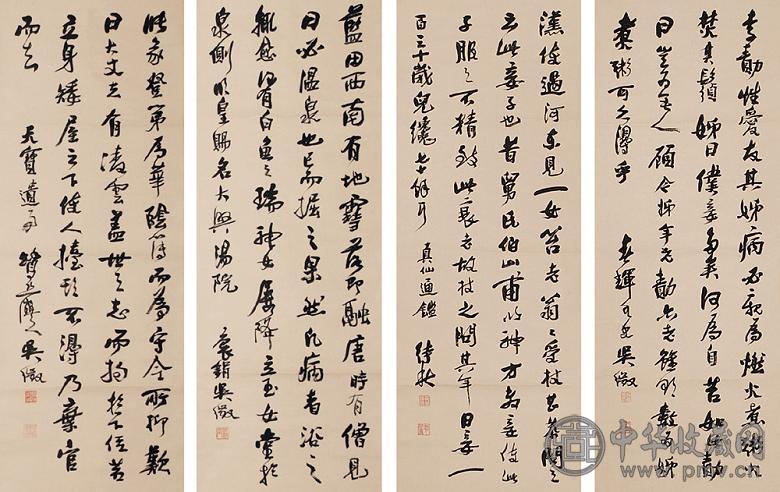 李勣性愛友其姊病必親為燃火煮粥火
焚其鬚姊曰僕妾多矣何為自苦如此勣
曰豈為無人顧今姊年老勣亦老雖欲數為姊
煮粥可久得乎 吳徵
漢使過河東見一女笞老翁々受杖甚恭問之
云此妾子也昔舅氏伯山甫以神方教妾使此
子服之不精致此衰老故杖之問其年曰妾一
百三十歲兒纔七十餘耳 真仙通鑑 待秋
藍田西南有地雪落即融唐時有僧見
曰必溫泉也已而掘之果然凡病者浴之
輒愈得有白魚之瑞神女屢降立玉女堂於
泉側明皇賜名大興湯院 袌鋗吳徵
張彖登第為華陰簿而為守令所抑歎
曰大丈夫有凌雲蓋世之志而拘於下位若
立身矮屋之下使人擡頭不得乃棄官
而去 天寶遺事 吳徵
中华收藏网